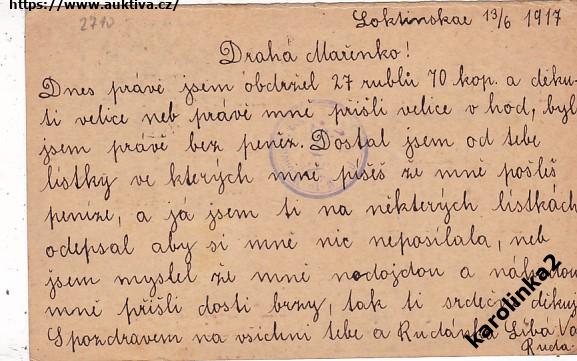 https://www.auktiva.cz/
2710
Loktinskae 13/6 1917
Drahá Mařenko!
Dnes právě jsem obdržel 27 rublů 70 kop. a děku-
ti velice neb právě mně přišli velice v hod, byl
jsem právě bez peněz. Dostal jsem od tebe
lístky ve kterých mně píšeš že mně pošleš
peníze, a já jsem ti na některých lístkách
odepsal aby si mně nic neposílala, neb
jsem myslel že mně nedojdou a náhodou
mně přišli dosti brzy, tak ti srdečně děkuj
S pozdravem na všichni tebe a Rudánka Líbá Vá
Ruda.
karolinka2